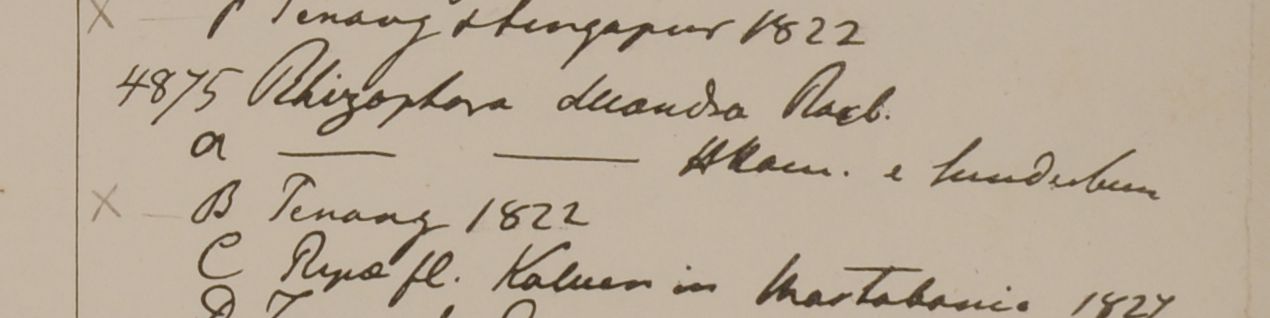 Penang & Singapur 1822
4875 Rhizophora decandra Roxb.
a H Ham. e Sunderbun
B Penang 1822
C Ripæ fl. Kaluen in Martabania 1827
D